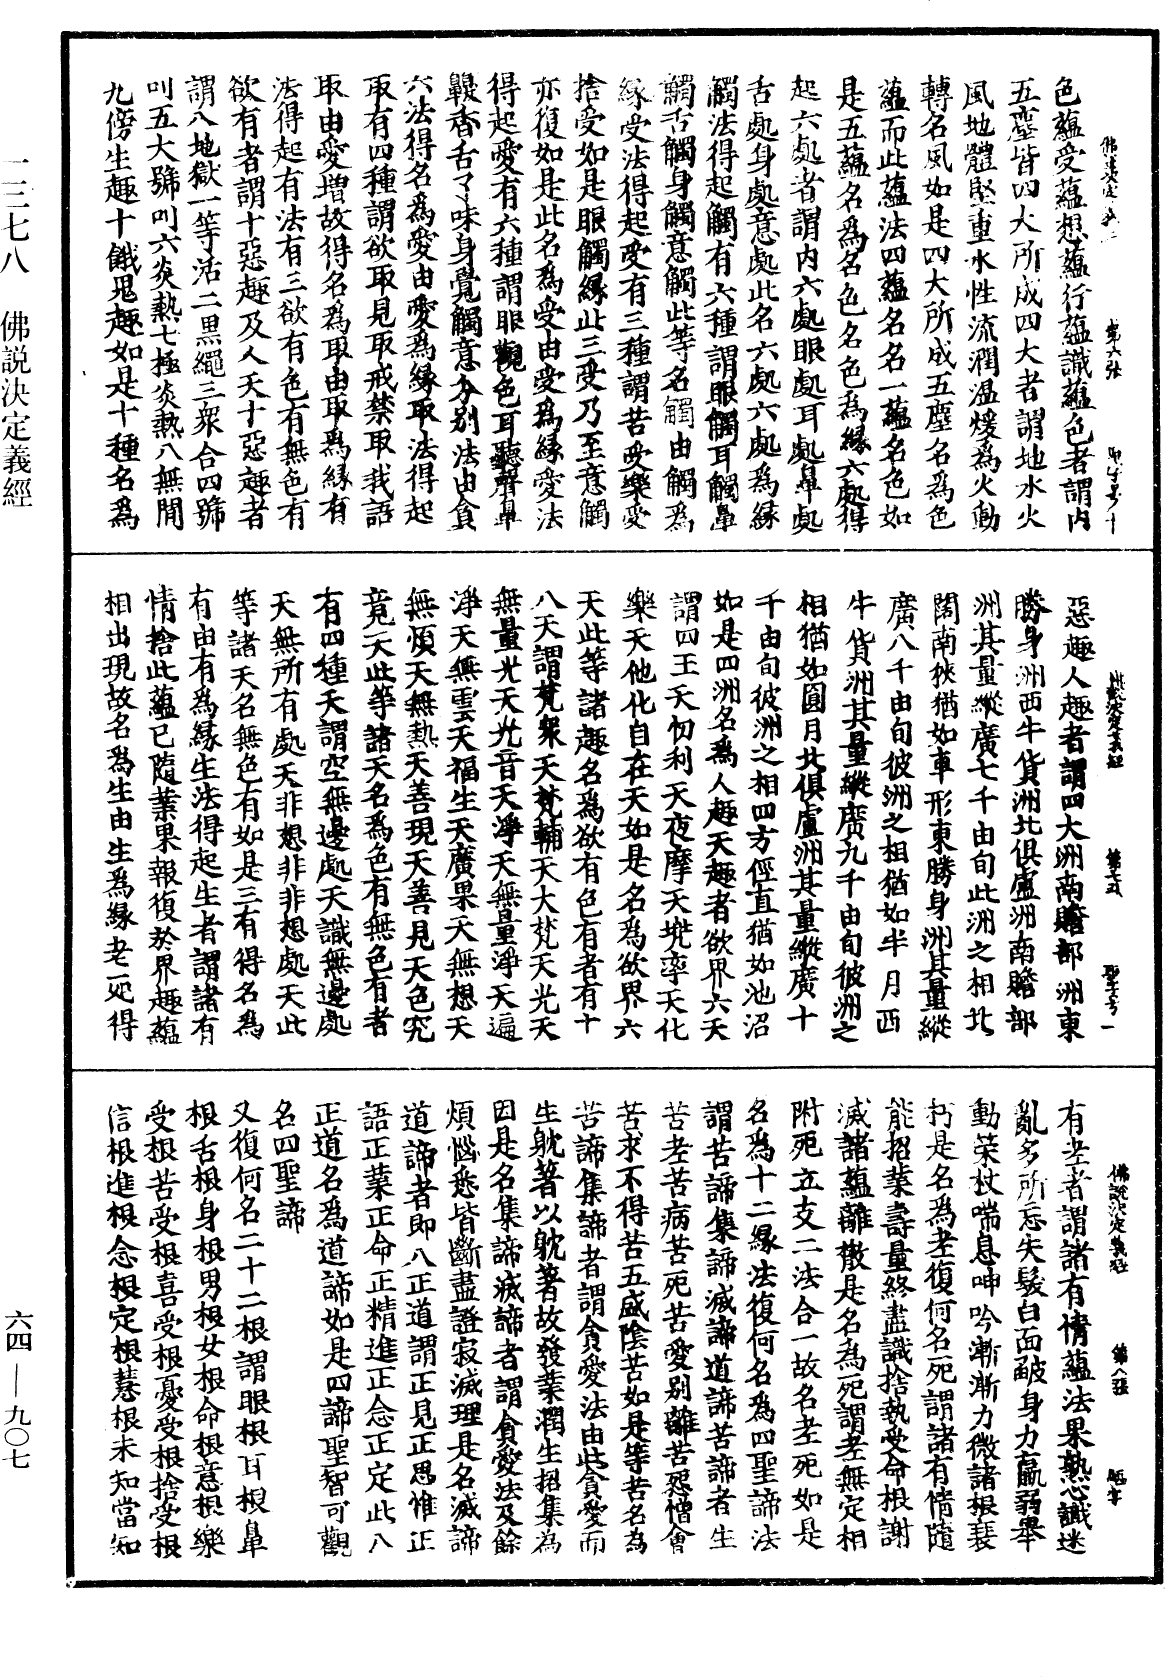 色蘊受蘊想蘊行蘊識蘊色者謂内
五塵皆四大所成四大者謂地水火
風地體堅重水性流潤温煖為火動
轉名風如是四大所成五塵名為色
蘊而此蘊法四蘊名名一蘊名色如
是五蘊名為名色名色為緣六處得
起六處者謂内六處眼處耳處鼻處
舌處身處意處此名六處六處為緣
觸法得起觸有六種謂眼觸耳觸鼻
觸舌觸身觸意觸此等名觸由觸為
緣受法得起受有三種謂苦受樂受
捨受如是眼觸緣此三受乃至意觸
亦復如是此名為受由受為緣愛法
得起愛有六種謂眼觀色耳聽聲鼻
齅香舌了味身覺觸意分别法由貪
六法得名為愛由愛為緣取法得起
取有四種謂欲取見取戒禁取我語
取由愛增故得名為取由取為緣有
法得起有法有三欲有色有無色有
欲有者謂十惡趣及人天十惡趣者
謂八地獄一等活二黑繩三衆合四號
叫五大號叫六炎熱七極炎熱八無間
九傍生趣十餓鬼趣如是十種名為
惡趣人趣者謂四大洲南贍部洲東
勝身洲西牛貨洲北俱盧洲南贍部
洲其量縱廣七千由旬此洲之相北
闊南狹猶如車形東勝身洲其量縱
廣八千由旬彼洲之相猶如半月西
牛貨洲其量縱廣九千由旬彼洲之
相猶如圓月北俱盧洲其量縱廣十
千由旬彼洲之相四方徑直猶如池沼
如是四洲名為人趣天趣者欲界六天
謂四王天忉利天夜摩天兜率天化
樂天他化自在天如是名為欲界六
天此等諸趣名為欲有色有者有十
八天謂梵衆天梵輔天大梵天光天
無量光天光音天淨天無量淨天遍
淨天無雲天福生天廣果天無想天
無煩天無熱天善現天善見天色究
竟天此等諸天名為色有無色有者
有四種天謂空無邊處天識無邊處
天無所有處天非想非非想處天此
等諸天名無色有如是三有得名為
有由有為緣生法得起生者謂諸有
情捨此蘊已隨業果報復於界趣蘊
相出現故名為生由生為緣老死得
有老者謂諸有情蘊法果熟心識迷
亂多所忘失髮白面皺身力羸弱舉
動策杖喘息呻吟漸漸力微諸根衰
朽是名為老復何名死謂諸有情隨
能招業壽量終盡識捨執受命根謝
滅諸蘊離散是名為死謂老無定相
附死立支二法合一故名老死如是
名為十二緣法復何名為四聖諦法
謂苦諦集諦滅諦道諦苦諦者生
苦老苦病苦死苦愛别離苦怨憎會
苦求不得苦五盛陰苦如是等苦名為
苦諦集諦者謂貪愛法由此貪愛而
生躭著以躭著故發業潤生招集為
因是名集諦滅諦者謂貪愛法及餘
煩惱悉皆斷盡證寂滅理是名滅諦
道諦者即八正道謂正見正思惟正
語正業正命正精進正念正定此八
正道名為道諦如是四諦聖智可觀
名四聖諦
又復何名二十二根謂眼根耳根鼻
根舌根身根男根女根命根意根樂
受根苦受根喜受根憂受根捨受根
信根進根念根定根慧根未知當知
一三七八　佛説決定義經
六四—九〇七
第六張
佛説決定義經
第八張